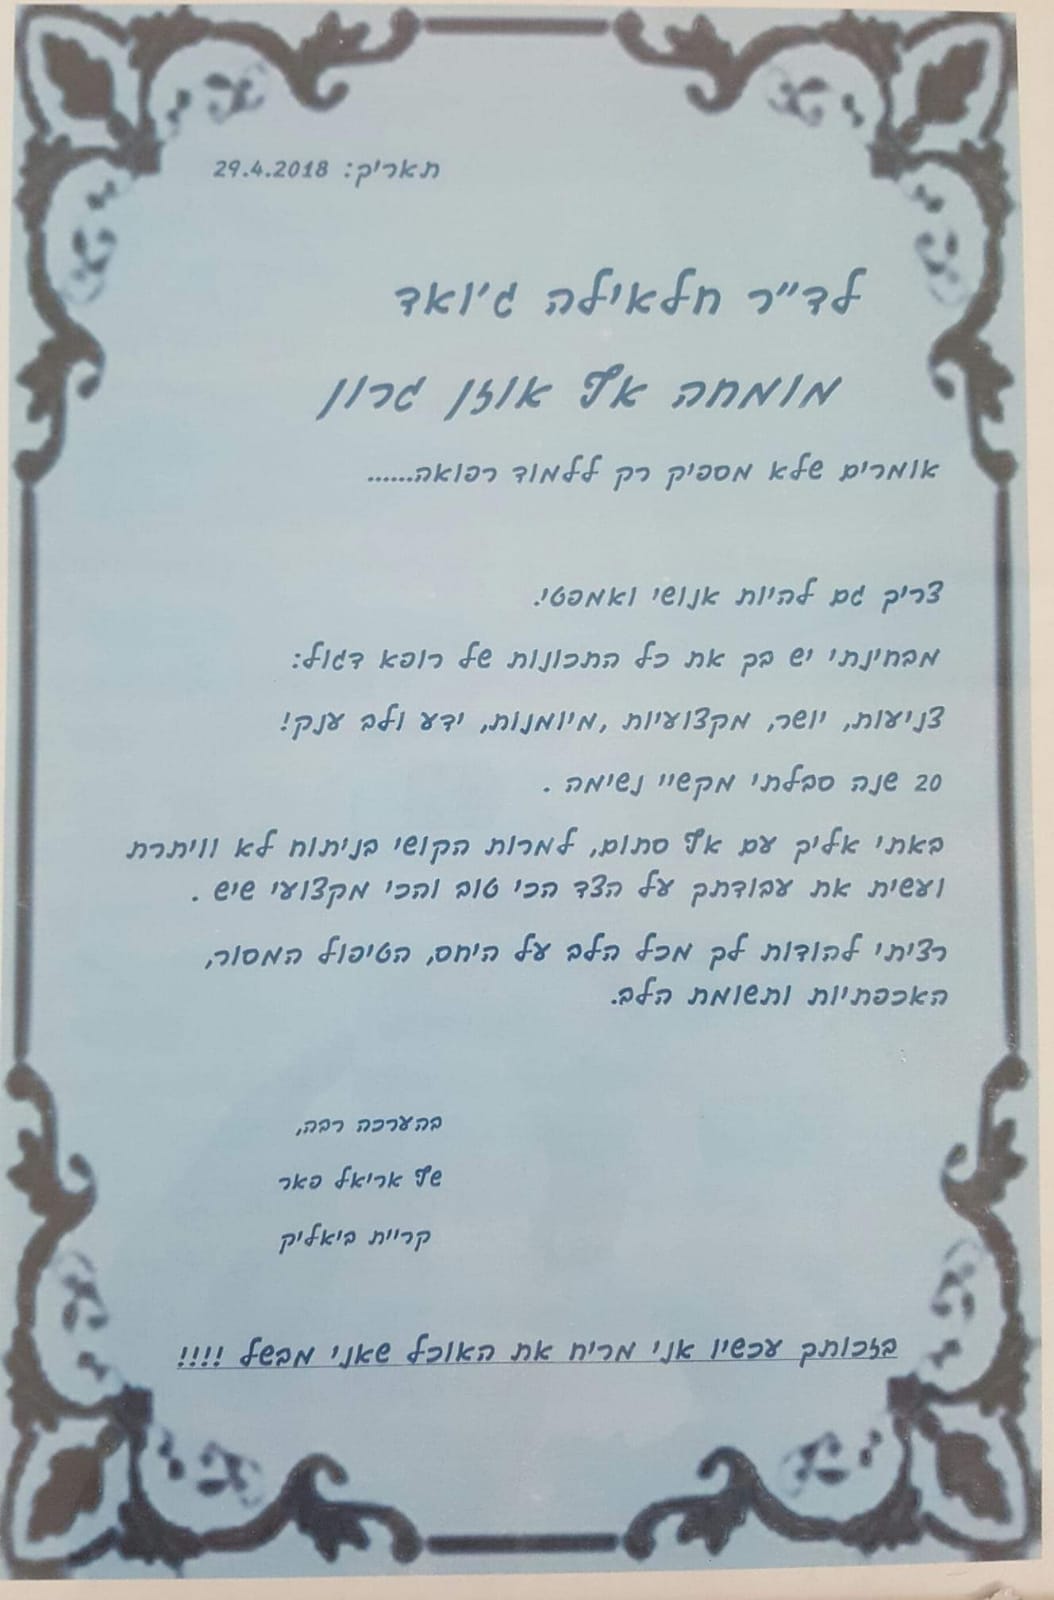 תאריך: 29.4.2018
לד"ר חלאילה ג'ואד
מומחה אף אוזן גרון
אומרים שלא מספיק רק ללמוד רפואה......
צריך גם להיות אנושי ואמפטי.
מבחינתי יש בך את כל התכונות של רופא דגול:
צניעות, יושר, מקצועיות ,מיומנות, ידע ולב ענק!
20 שנה סבלתי מקשיי נשימה .
באתי אליך עם אף סתום, למרות הקושי בניתוח לא וויתרת
ועשית את עבודתך על הצד הכי טוב והכי מקצועי שיש .
רציתי להודות לך מכל הלב על היחס, הטיפול המסור,
האכפתיות ותשומת הלב.
בהערכה רבה,
שף אריאל פאר
קריית ביאליק
בזכותך עכשיו אני מריח את האוכל שאני מבשל !!!!